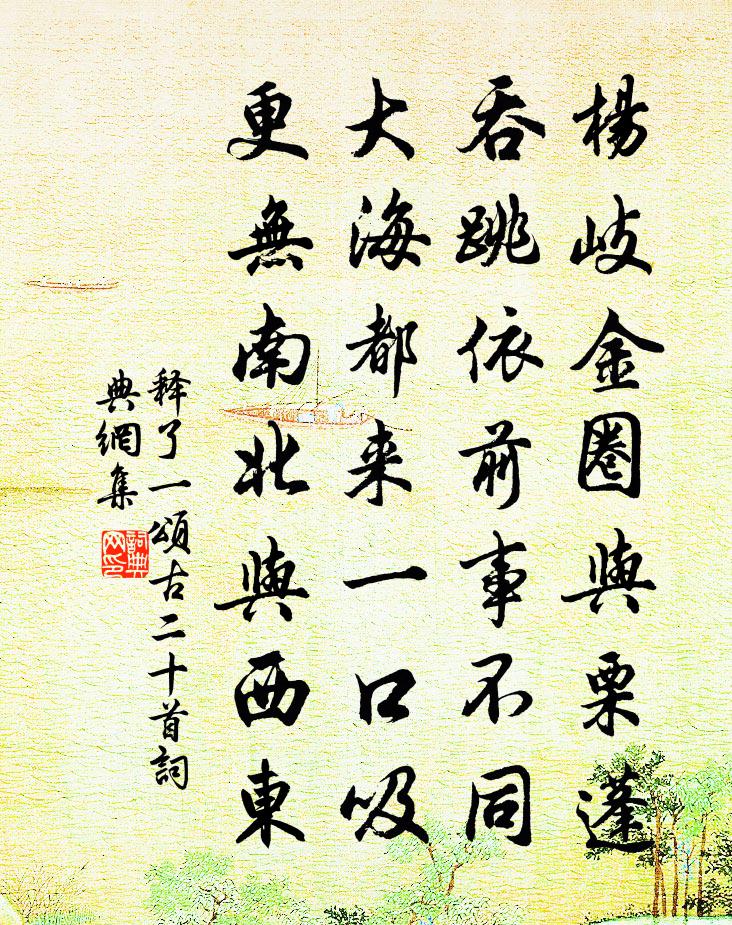 楊岐金圈與栗蓬
吞跳依前事不同
大海都来一口吸
更無南北與西東
释了一頌古二十首詞
典網集
詞典
网印